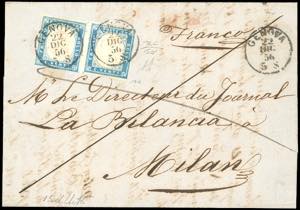 GENOVA
22
DIC
56
5 S
DIC.
56
5 S
Franco
GENOVA
22
DIC
56
5 S
M. le Directeur du Journal
La Bilancia
Milan